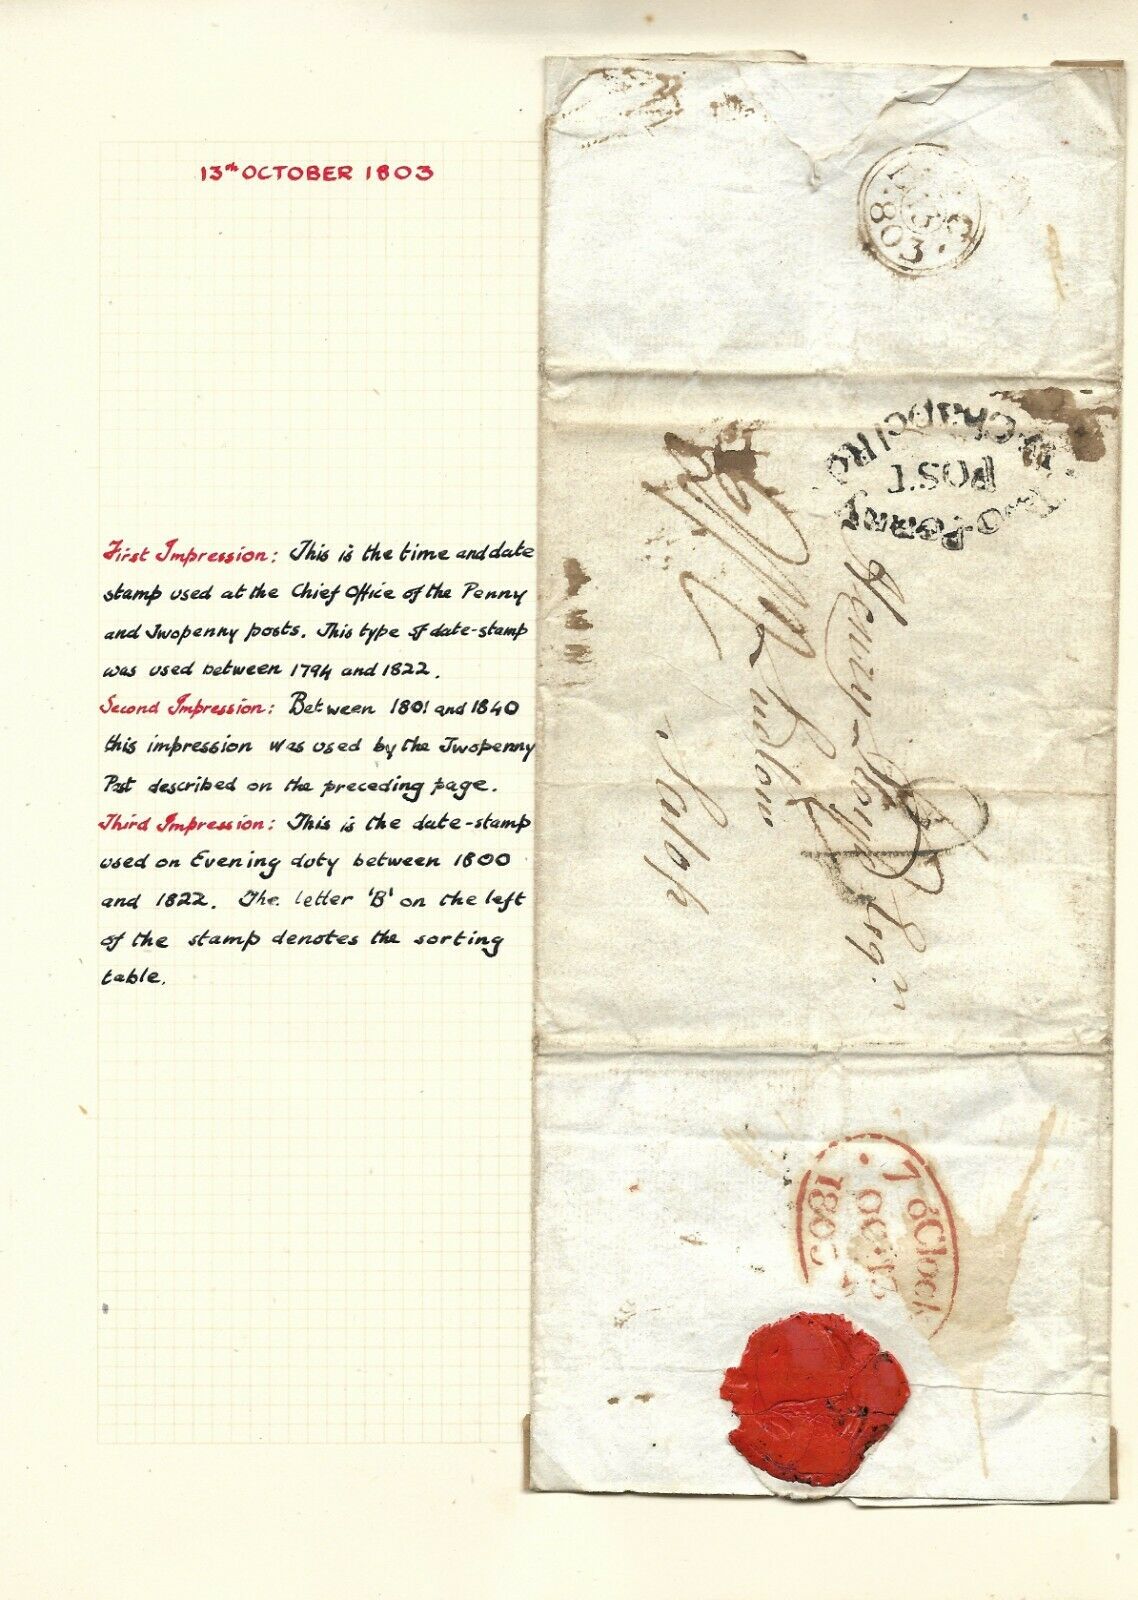 13th OCTOBER 1803
First Impression: This is the time and date
stamp used at the Chief Office of the Penny
and Twopenny posts. This type of date-stamp
was used between 1794 and 1822.
Second Impression: Between 1801 and 1840
this impression was used by the Twopenny
Post described on the preceding page.
Third Impression: This is the date-stamp
used on Evening duty between 1800
and 1822. The letter 'B' on the left
of the stamp denotes the sorting
table.
803
Two Penny
POST
Henry Lloyd Esqr
Ludlow
Salop
7 oClock
OC. 13
1803